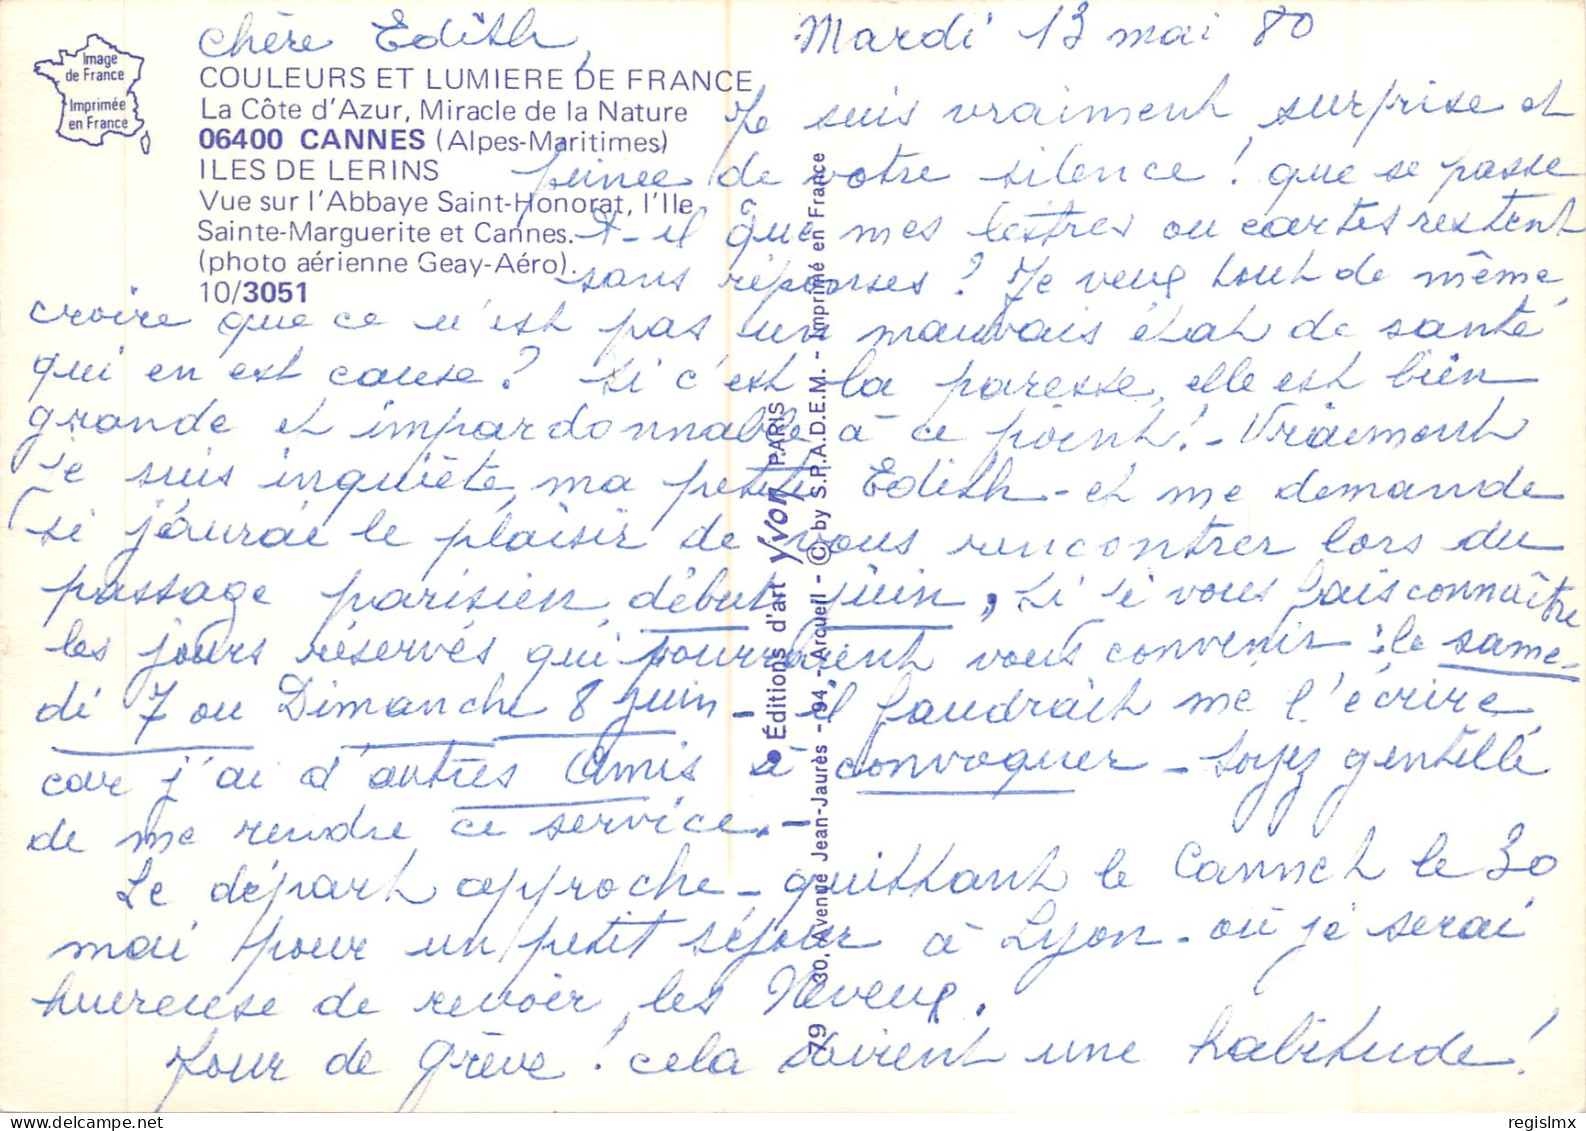 Chère Edith,
Mardi 13 mai 80
Image
de France
Imprimée
en France
COULEURS ET LUMIERE DE FRANCE
La Côte d'Azur, Miracle de la Nature
06400 CANNES (Alpes-Maritimes)
ILES DE LERINS
Vue sur l'Abbaye Saint-Honorat, l'Ile
Sainte-Marguerite et Cannes.
(photo aérienne Geay-Aéro).
10/3051
Je suis vraiment surprise et
peinée de votre silence ! que se passe
t-il que mes lettres ou cartes restent
sans réponses ? Je veux tout de même
croire que ce n'est pas un mauvais état de santé
qui en est cause ? Si c'est la paresse, elle est bien
grande et impardonnable à ce point ! - Vraiment
je suis inquiète, ma petite Edith - et me demande
si j'aurai le plaisir de vous rencontrer lors du
passage parisien début juin, si je vous fais connaître
les jours réservés qui pourraient vous convenir : le same-
di 7 ou Dimanche 8 juin - il faudrait me l'écrire
car j'ai d'autres Amis à convoquer - Soyez gentille
de me rendre ce service. -
Le départ approche - quittant le Cannet le 30
mai pour un petit séjour à Lyon - où je serai
heureuse de revoir les Neveux.
Jour de grève ! cela devient une habitude !
Éditions d'art Yvon PARIS
30, Avenue Jean-Jaurès - 94 - Arcueil - © by S.P.A.D.E.M. - Imprimé en France
79
regislmx